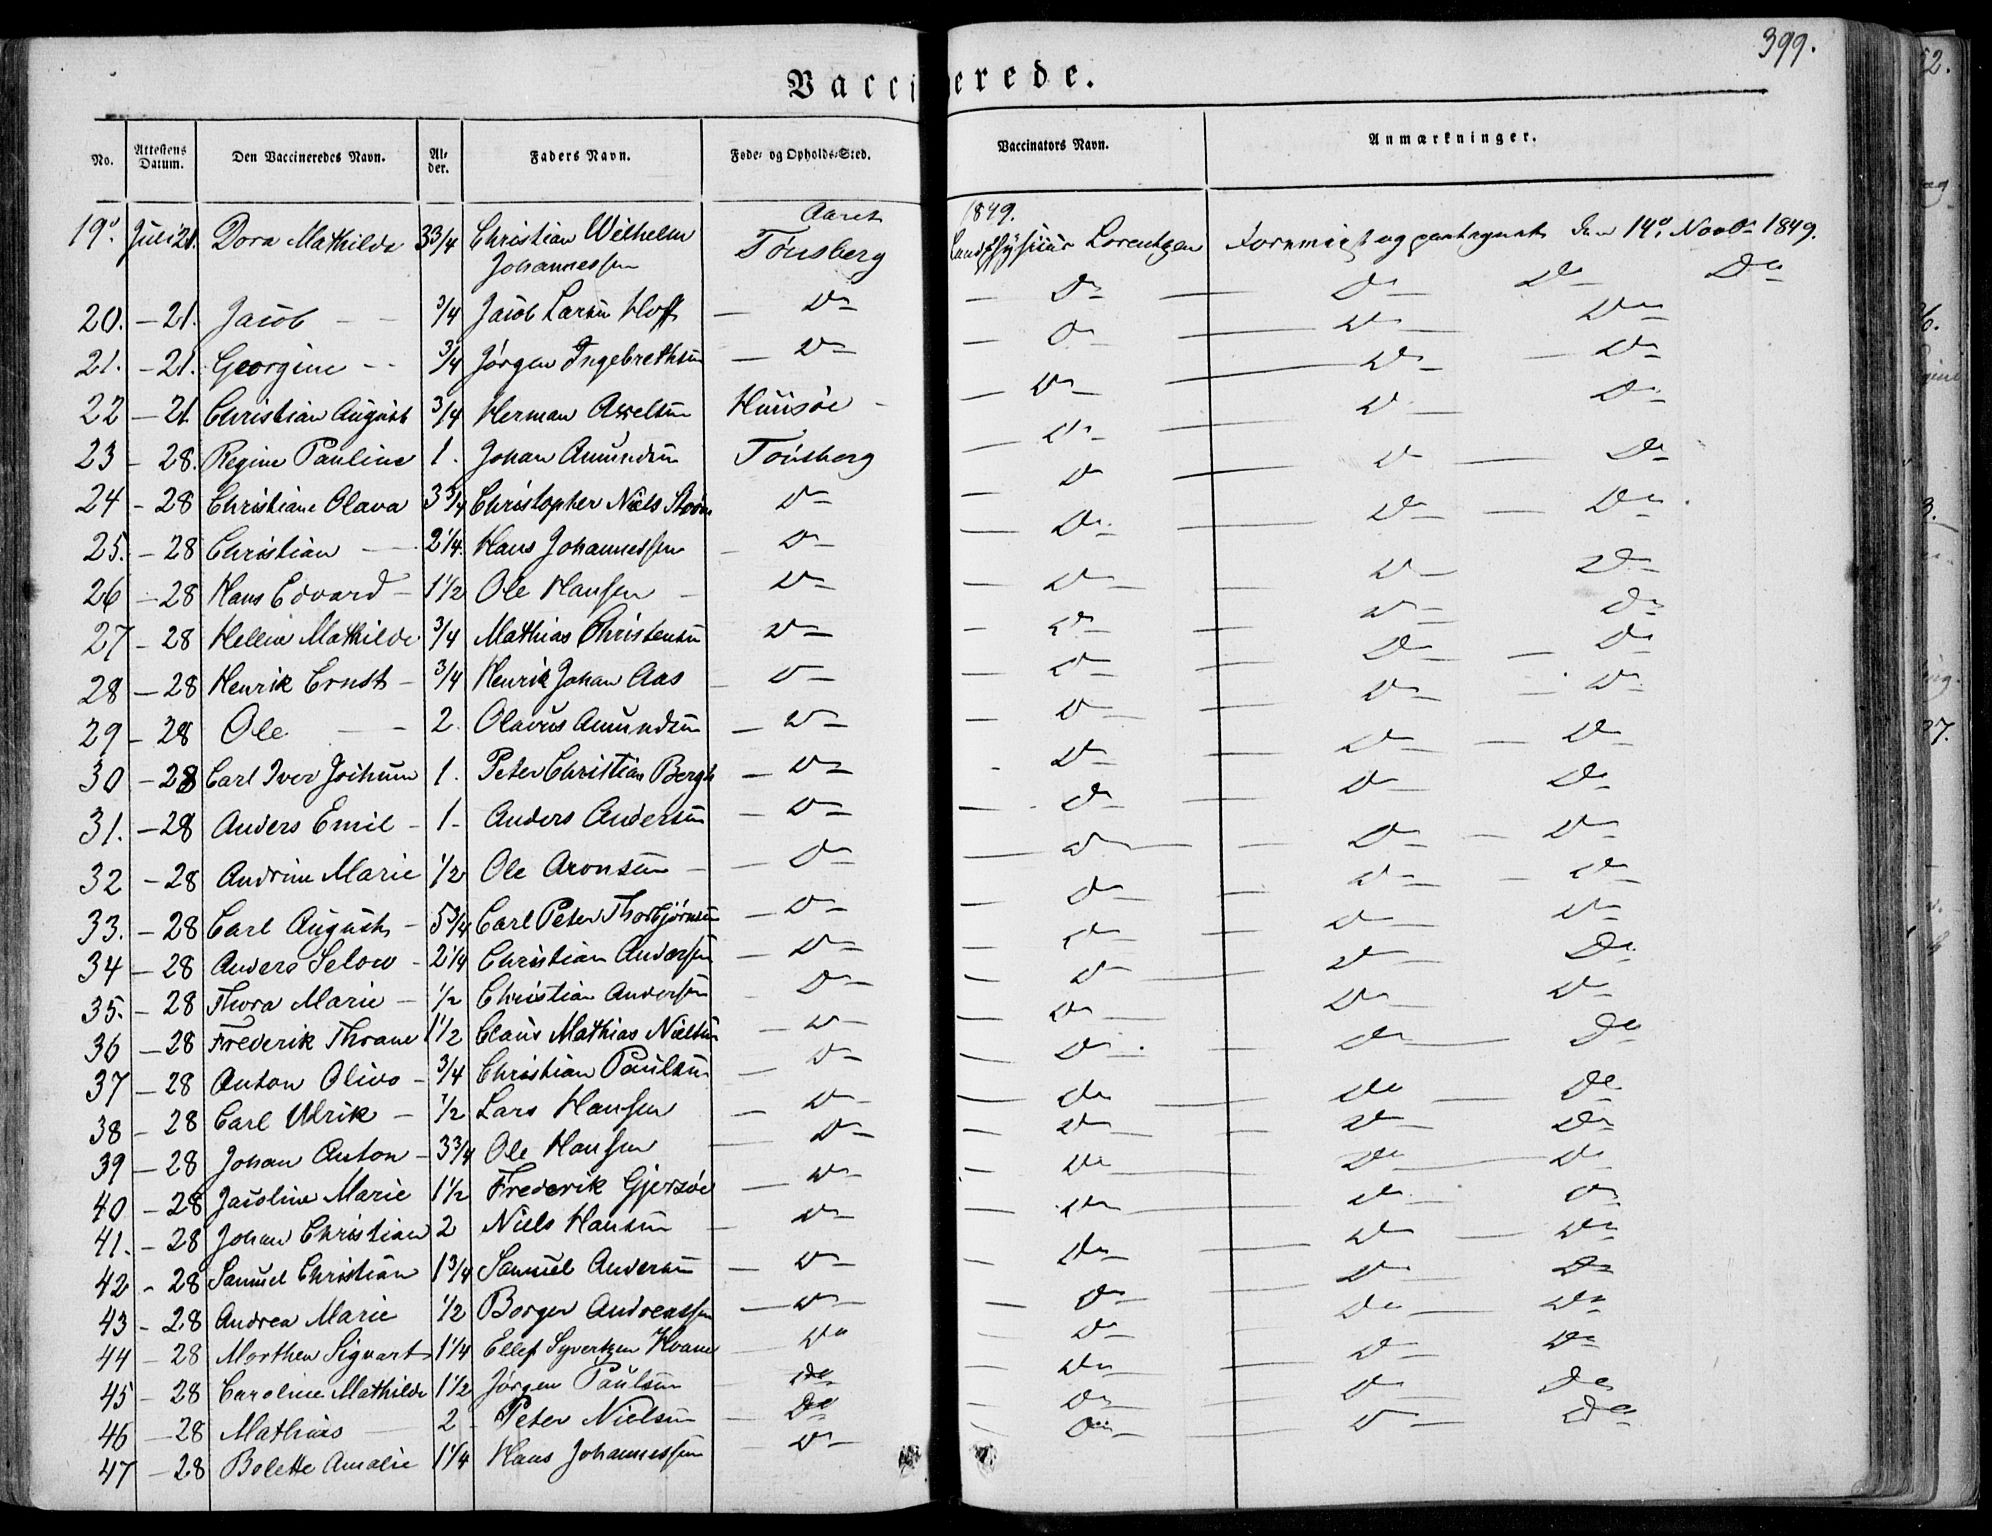 399.
Vaccinerede.
No. Attestens Datum. Den Vaccineredes Navn. Al-der. Faders Navn. Føde- og Opholds-Sted. Vaccinators Navn. Anmærkninger.
Aaret 1849.
19. Juli 21. Dora Mathilde 3 3/4 Christian Wilhelm Johannessen Tønsberg Landphysicus Lorentzen den 14. Novbr 1849.
20. – 21. Jacob – – 3/4 Jacob Larsen Hoff – Do – Do – Do Do Do
21. – 21. Georgine – – 3/4 Jørgen Ingebrethsen – Do – Do – Do Do
22 – 21. Christian August 3/4 Herman Axelsen Huusøe – Do – Do – Do
23 – 28. Regine Pauline 1. Johan Amundsen Tønsberg – Do – Do Do
24 – 28 Christiane Olava 3 3/4 Christopher Niels Do – Do – Do – Do
25. – 28 Christian – 2 1/4. Hans Johannessen – Do – Do – Do – Do
26 – 28 Hans Edvard – 1 1/2 Ole Hansen – Do – Do – Do Do
27 – 28 Hellene Mathilde 3/4 Mathias Christensen Do – Do – Do Do
28 – 28 Henrik Ernst – 3/4 Henrik Johan Aas – Do – Do – Do – Do
29 – 28 Ole – – 2. Olavus Amundsen – Do – Do – Do – Do
30 – 28 Carl Iver Jochum 1. Peter Christian Bergh – Do – Do – Do – Do
31. – 28 Anders Emil – 1 – Anders Andersen – Do – Do – Do Do
32 – 28 Andrine Marie 1/2 Ole Aronsen – – Do – Do – Do – Do
33. – 28 Carl August – 5 3/4 Carl Peter Thorbjørnsen – Do – Do – Do – Do
34 – 28 Anders Selow – 2 1/4 Christian Andersen – Do – Do – Do Do
35. – 28 Thora Marie – 1/2 Christian Andersen – Do – Do – Do Do
36 – 28 Frederik Thrane 1 1/2 Claus Mathias Nielsen – Do – Do – Do Do
37 – 28 Anton Olivo – 3/4 Christian Paulsen – Do – Do – Do Do
38 – 28 Carl Ulrik – 1/2 Lars Hansen – Do – Do – Do – Do
39 – 28 Johan Anton – 3 3/4 Ole Hansen – Do – Do – Do Do
40 – 28 Jacoline Marie 1 1/2 Frederik Gjersøe – Do – Do – Do – Do
41. – 28 Johan Christian 2 Niels Hansen – Do – Do – Do Do
42 – 28 Samuel Christian 1 3/4 Samuel Andersen – Do – Do – Do – Do
43 – 28 Andrea Marie 1/2 Borger Andreassen – Do – Do – Do Do
44 – 28 Morthen Sigvart 1 1/4 Ellef Syvertzen Hvane Do – Do – Do – Do
45 – 28 Caroline Mathilde 1 1/2 Jørgen Paulsen – Do – Do – Do Do
46 – 28 Mathias – 2 – Peter Nielsen – Do – Do – Do Do
47 – 28 Bolette Amalie 1 1/4 Hans Johannessen – Do – Do – Do Do